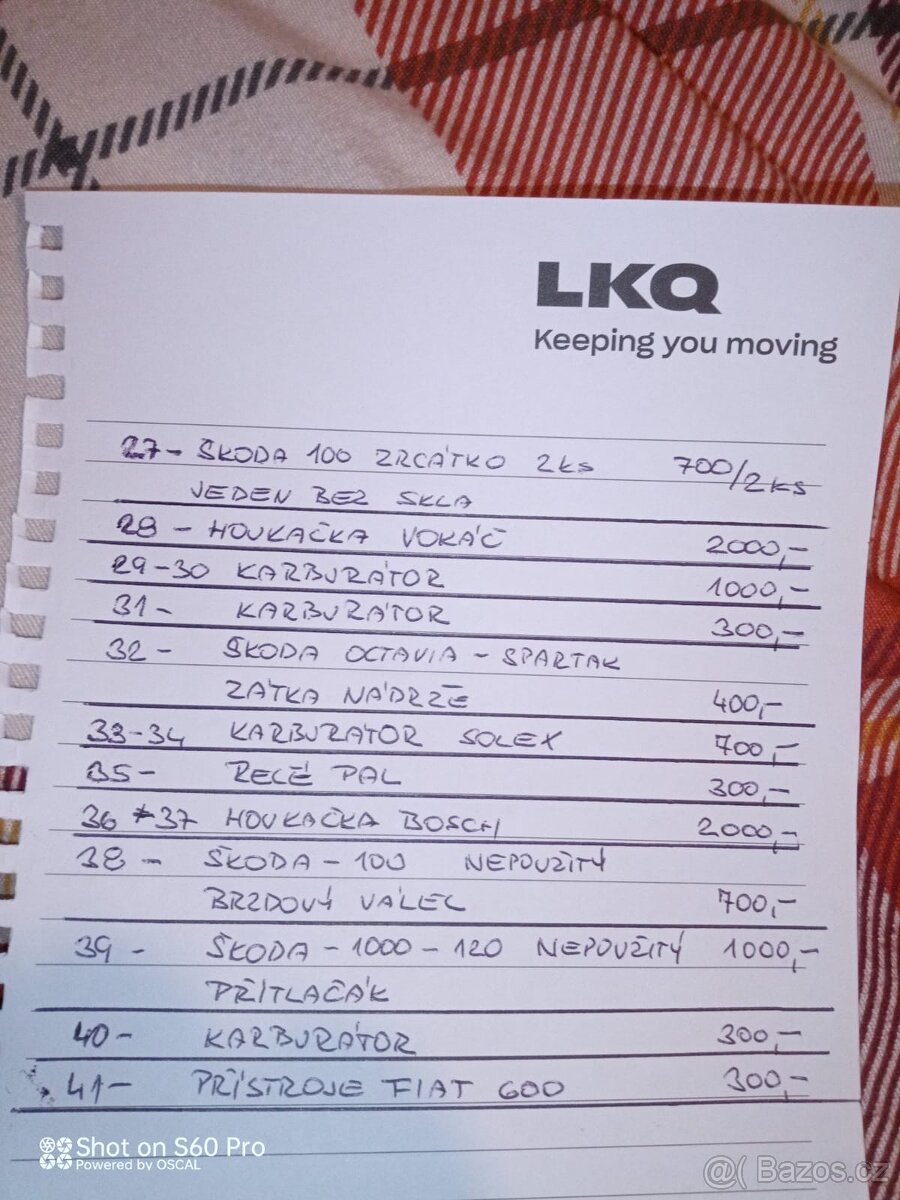 LKQ
Keeping you moving
27- ŠKODA 100 ZRCÁTKO 2ks 700/2KS
JEDEN BEZ SKLA
28 - HOUKAČKA VOKÁČ 2000,-
29-30 KARBURÁTOR 1000,-
31- KARBURÁTOR 300,-
32- ŠKODA OCTAVIA - SPARTAK
ZÁTKA NÁDRŽE 400,-
33-34 KARBURÁTOR SOLEX 700,-
35- RELÉ PAL 300,-
36 *37 HOUKAČKA BOSCH 2000,-
38- ŠKODA-100 NEPOUŽITÝ
BRZDOVÝ VÁLEC 700,-
39- ŠKODA-1000-120 NEPOUŽITÝ 1000,-
PŘÍTLAČÁK
40- KARBURÁTOR 300,-
41- PŘÍSTROJE FIAT 600 300,-
Shot on S60 Pro
Powered by OSCAL
@( Bazos.cz